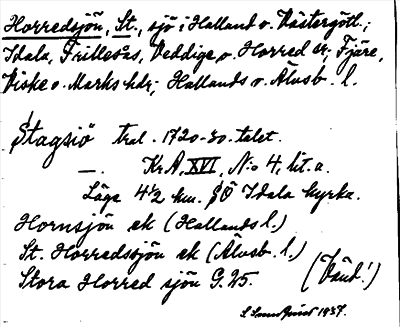 Horredsjön, St., sjö i Halland o. Västergötl.;
Idala, Frillesås, Veddige o. Horred sr, Fjäre,
Viske o. Marks hdr; Hallands o. Älvsb. l.
Stagsiö tral. 1720-30-talet.
—. Kr A, XVI, N:o 4, lit. a.
Läge 4½ km. SÖ Idala kyrka.
Hornsjön ek (Hallands l.)
St. Horredssjön ek (Älvsb. l.)
Stora Horred sjön G. 25. (Vänd!)
1937.